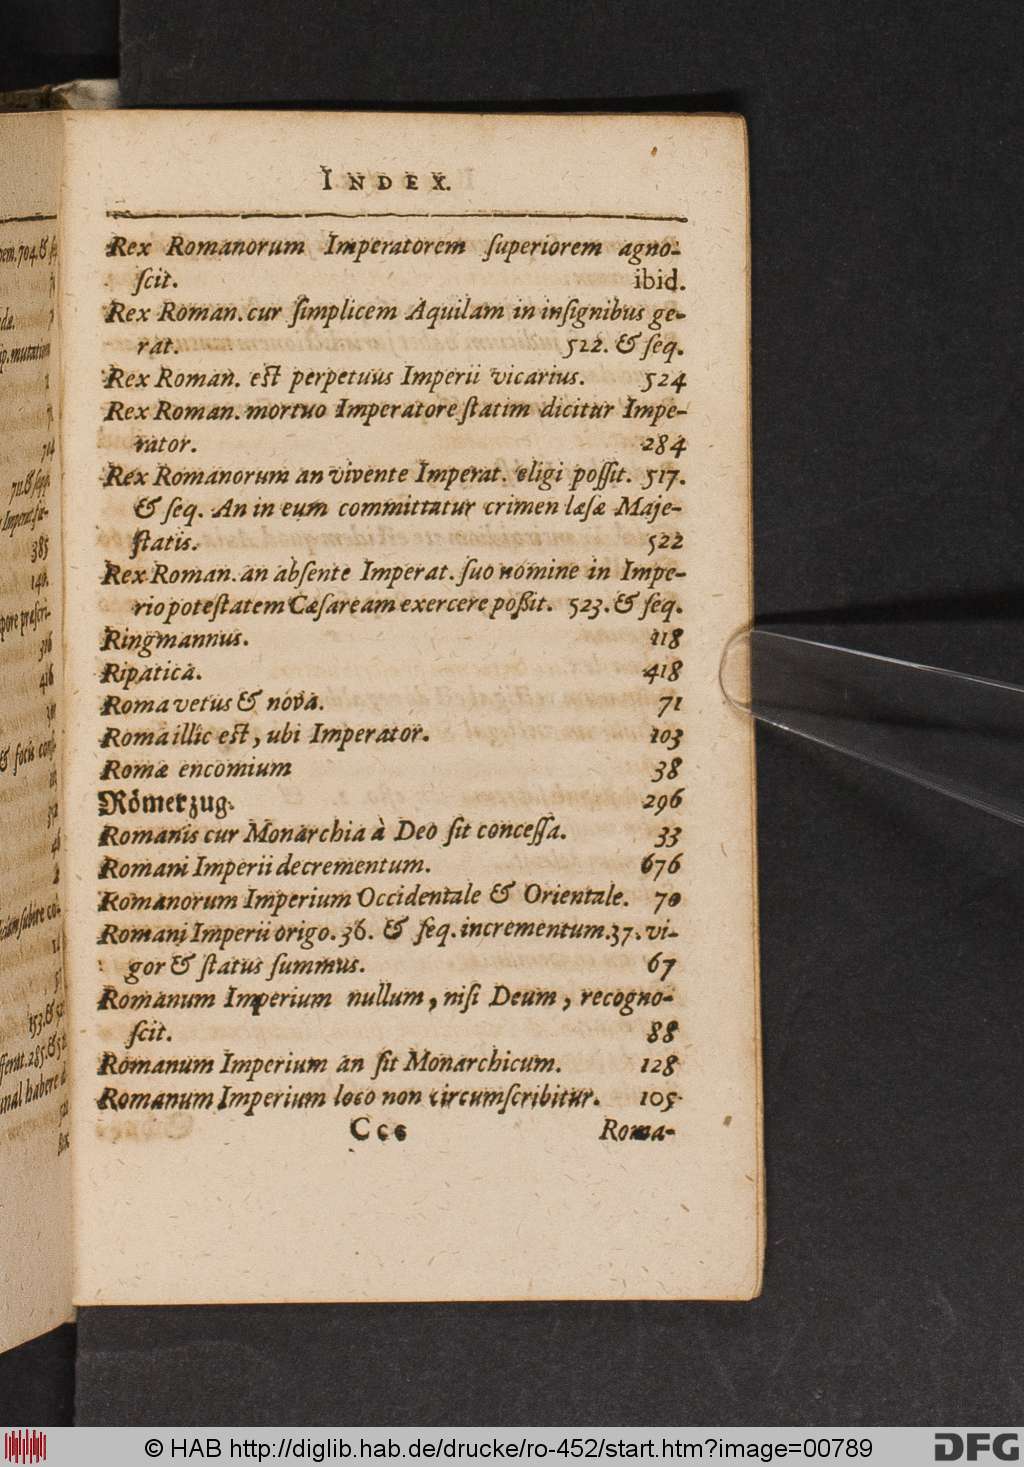 INDEX.
Rex Romanorum Imperatorem ſuperiorem agno-
ſcit. ibid.
Rex Roman. cur ſimplicem Aquilam in inſignibus ge-
rat. 522. & ſeq.
Rex Roman. est perpetuus Imperii vicarius. 524
Rex Roman. mortuo Imperatore ſtatim dicitur Impe-
rator. 284
Rex Romanorum an vivente Imperat. eligi poſſit. 517.
& ſeq. An in eum committatur crimen læſæ Maje-
ſtatis. 522
Rex Roman. an abſente Imperat. ſuo nomine in Impe-
rio poteſtatem Cæſaream exercere poßit. 523. & ſeq.
Ringmannus. 118
Ripatica. 418
Roma vetus & nova. 71
Roma illic est, ubi Imperator. 103
Romæ encomium 38
Römerzug. 296
Romanis cur Monarchia à Deo ſit conceſſa. 33
Romani Imperii decrementum. 676
Romanorum Imperium Occidentale & Orientale. 70
Romani Imperii origo. 36. & ſeq. incrementum. 37. vi-
gor & ſtatus ſummus. 67
Romanum Imperium nullum, niſi Deum, recogno-
ſcit. 88
Romanum Imperium an ſit Monarchicum. 128
Romanum Imperium loco non circumſcribitur. 105
Ccc Roma-
© HAB http://diglib.hab.de/drucke/ro-452/start.htm?image=00789
DFG